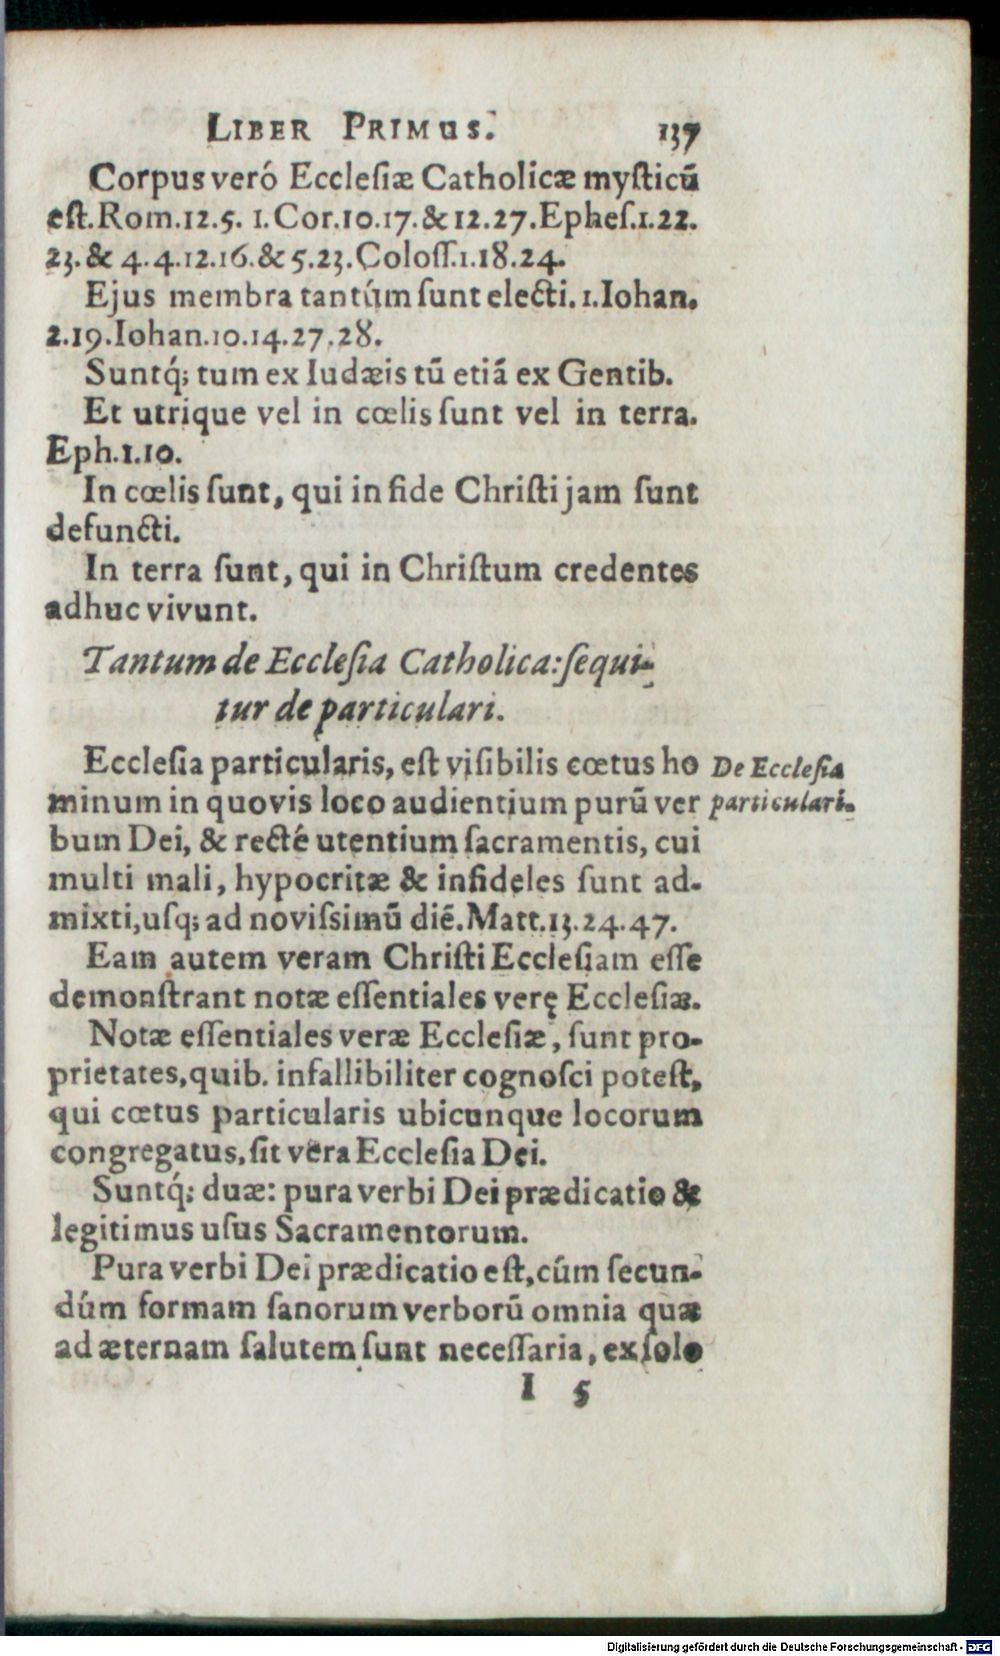 LIBER PRIMUS. 137
Corpus veró Ecclesiæ Catholicæ mysticũ
est. Rom.12.5. 1.Cor.10.17.&12.27.Ephes.1.22.
23.& 4.4.12.16.&5.23.Coloss.1.18.24.
Ejus membra tantúm sunt electi.1.Iohan.
2.19.Iohan.10.14.27.28.
Suntq́; tum ex Iudæis tũ etiã ex Gentib.
Et utrique vel in cœlis sunt vel in terra.
Eph.1.10.
In cœlis sunt, qui in fide Christi jam sunt
defuncti.
In terra sunt, qui in Christum credentes
adhuc vivunt.
Tantum de Ecclesia Catholica: sequi-
tur de particulari.
Ecclesia particularis, est visibilis cœtus ho
minum in quovis loco audientium purũ ver
bum Dei, & recté utentium sacramentis, cui
multi mali, hypocritæ & infideles sunt ad-
mixti, usq; ad novissimũ diẽ. Matt.13.24.47.
Eam autem veram Christi Ecclesiam esse
demonstrant notæ essentiales verę Ecclesiæ.
Notæ essentiales veræ Ecclesiæ, sunt pro-
prietates, quib. infallibiliter cognosci potest,
qui cœtus particularis ubicunque locorum
congregatus, sit vera Ecclesia Dei.
Suntq́; duæ: pura verbi Dei prædicatio &
legitimus usus Sacramentorum.
Pura verbi Dei prædicatio est, cúm secun-
dúm formam sanorum verborũ omnia quæ
ad æternam salutem sunt necessaria, ex solo
I 5
De Ecclesia
particulari.
Digitalisierung gefördert durch die Deutsche Forschungsgemeinschaft - DFG